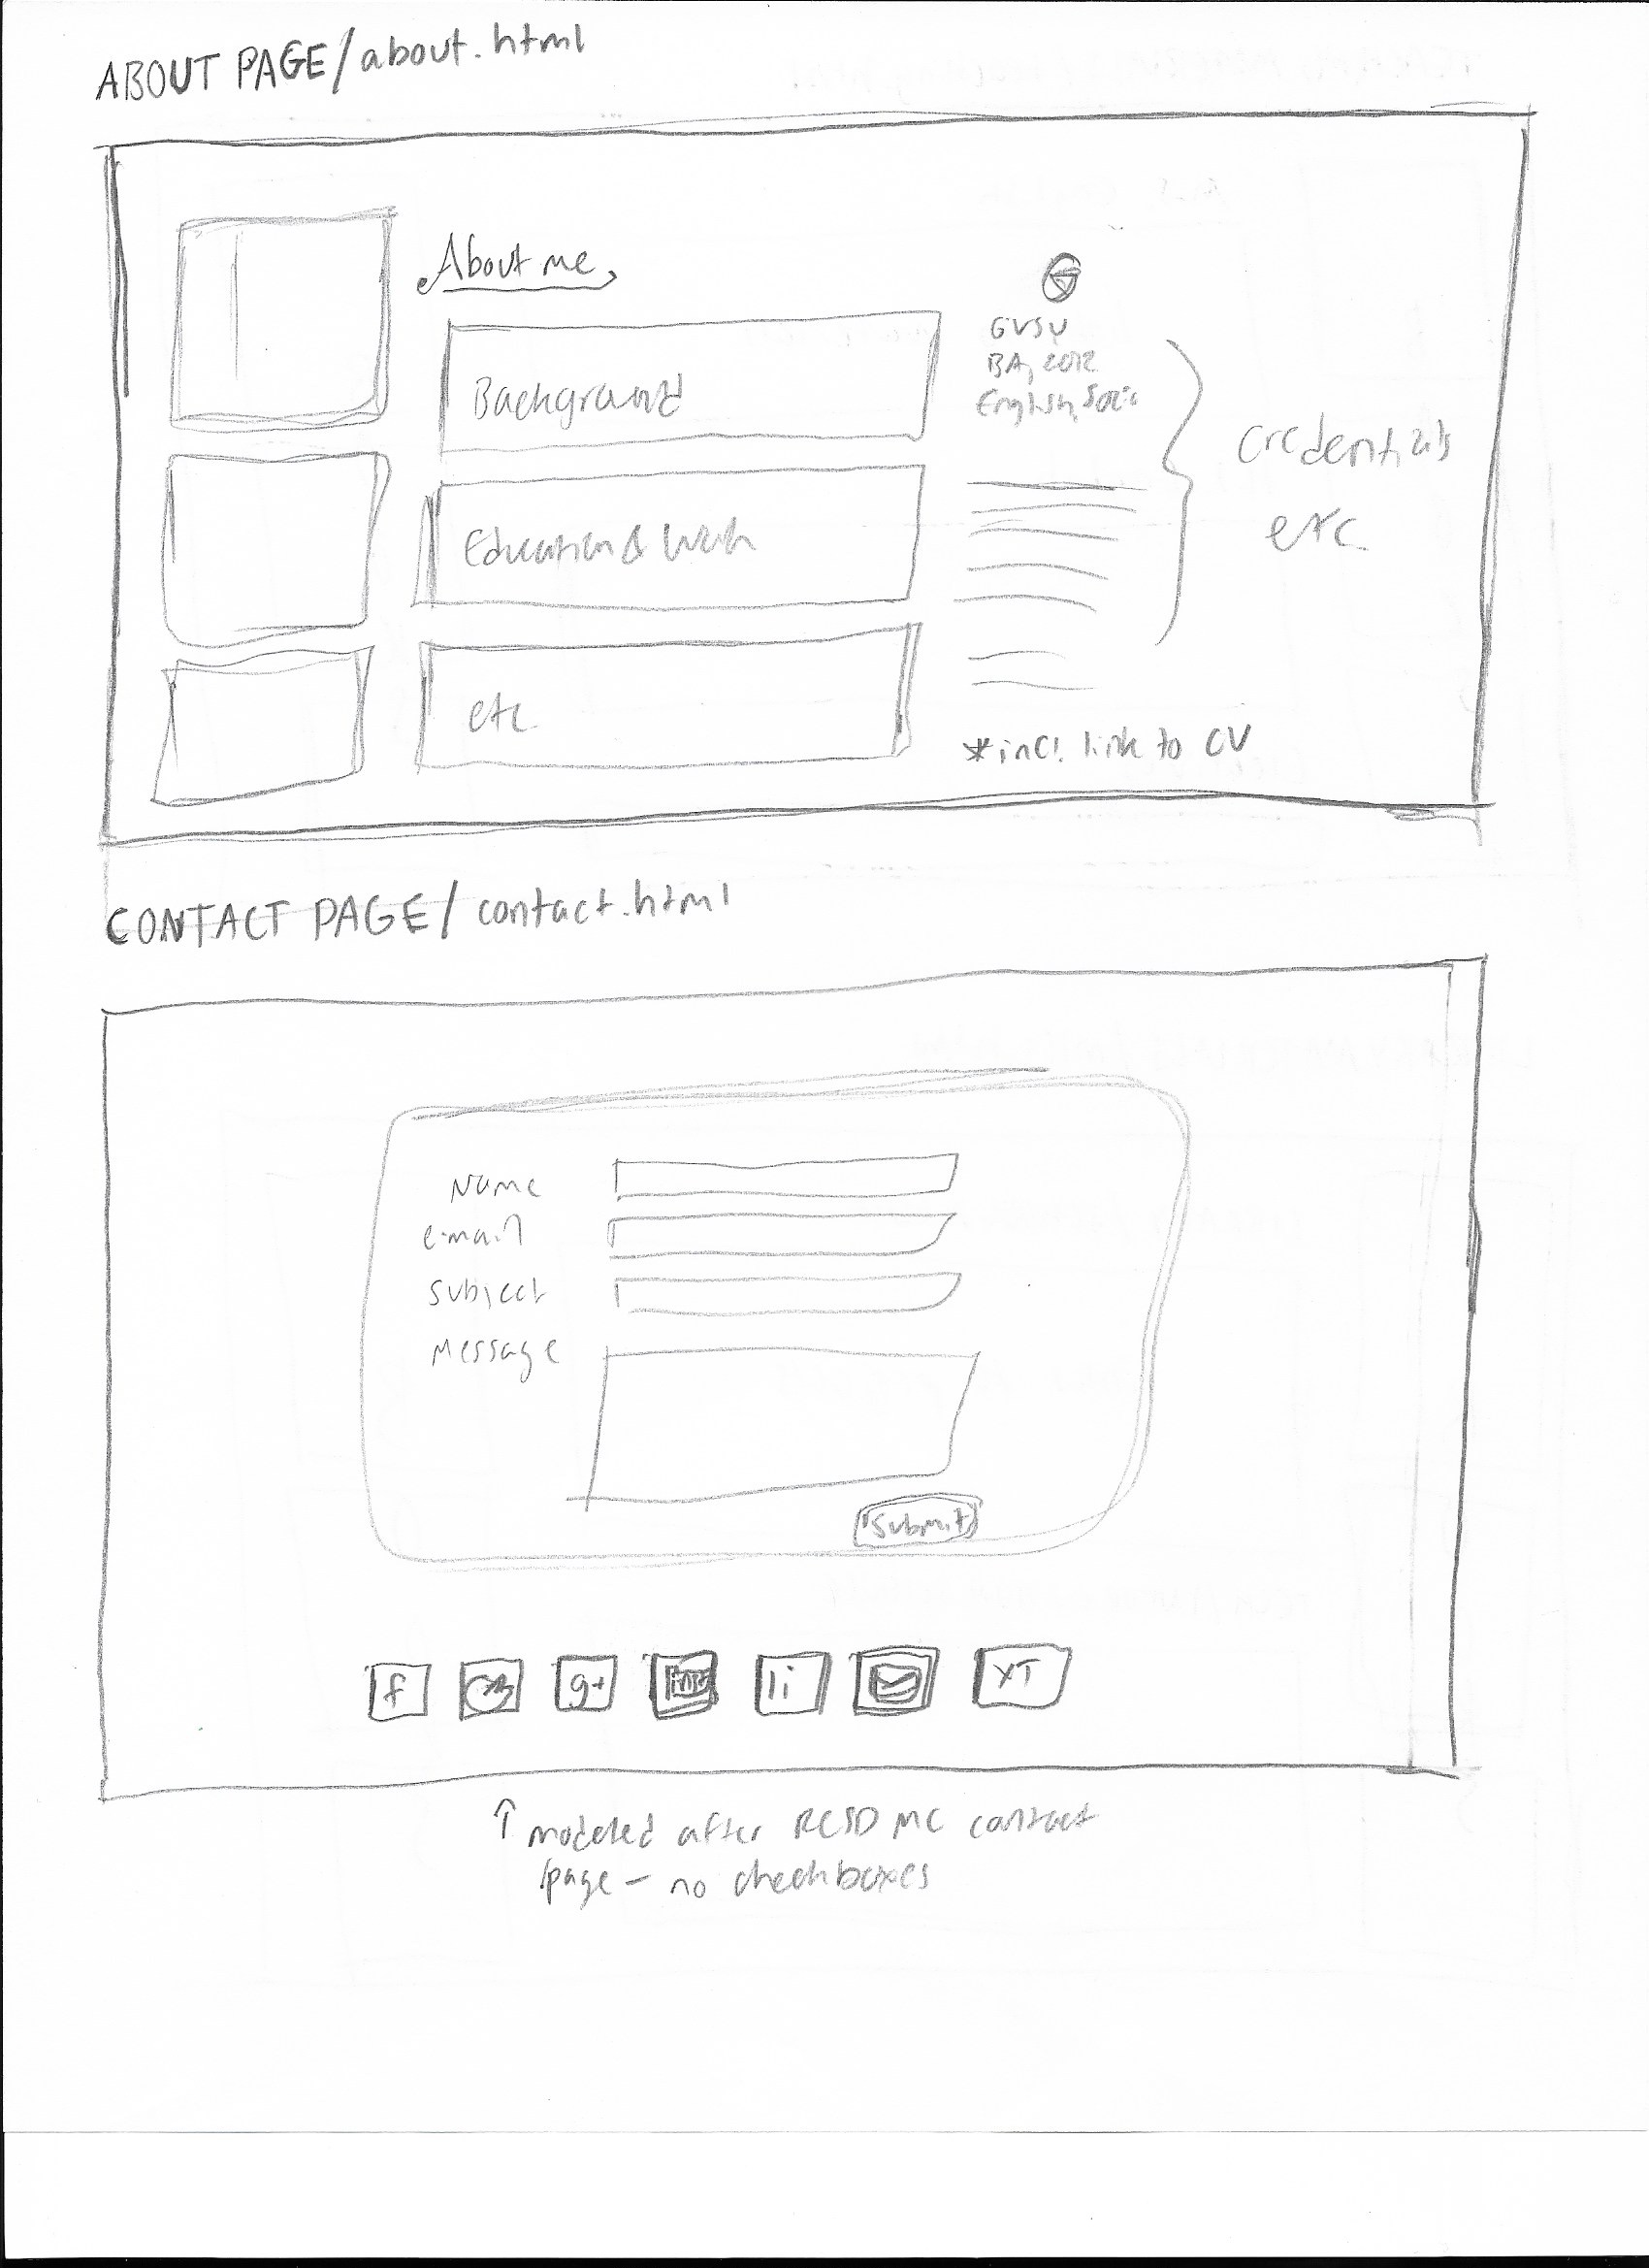 ABOUT PAGE/about.html
About me
Background
Education & Work
etc
GVSU
BA, 2012
English, Soc
credentials
etc
*incl link to CV
CONTACT PAGE/contact.html
Name
email
subject
Message
submit
f
g+
li
XT
↑ modeled after RCSD MC contact
page - no checkboxes